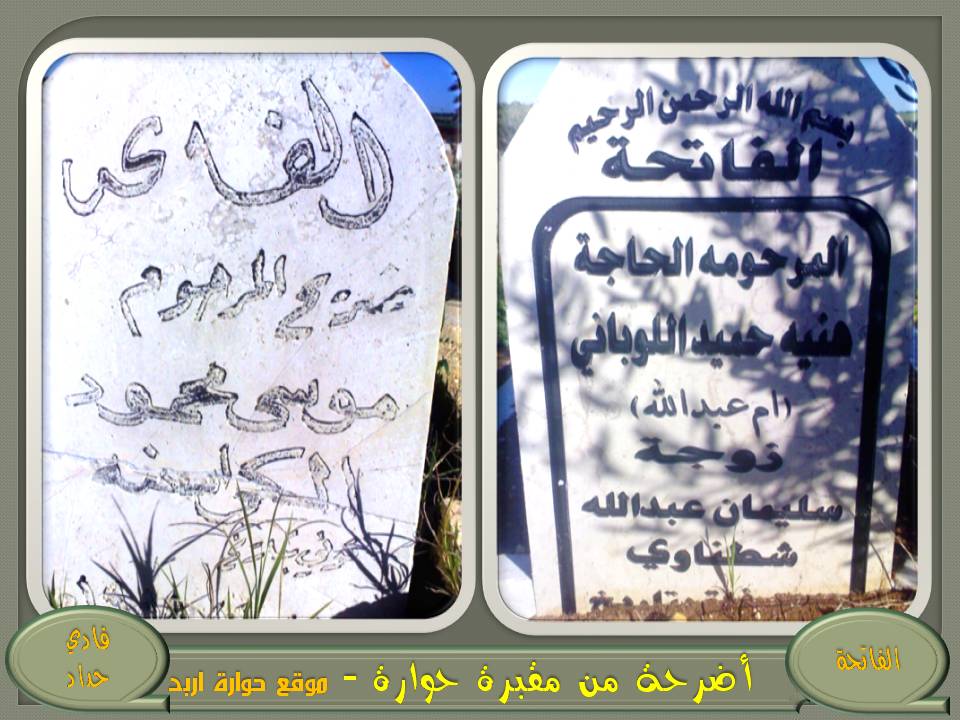 بسم الله الرحمن الرحيم
الفاتحة
المرحومه الحاجة
هنيه حميد اللوباني
(ام عبدالله)
زوجة
سليمان عبدالله
شطناوي
ضريح المرحوم
موسى محمود
الفاتحة
أضرحة من مقبرة حوارة - موقع حوارة اربد
فادي
حداد